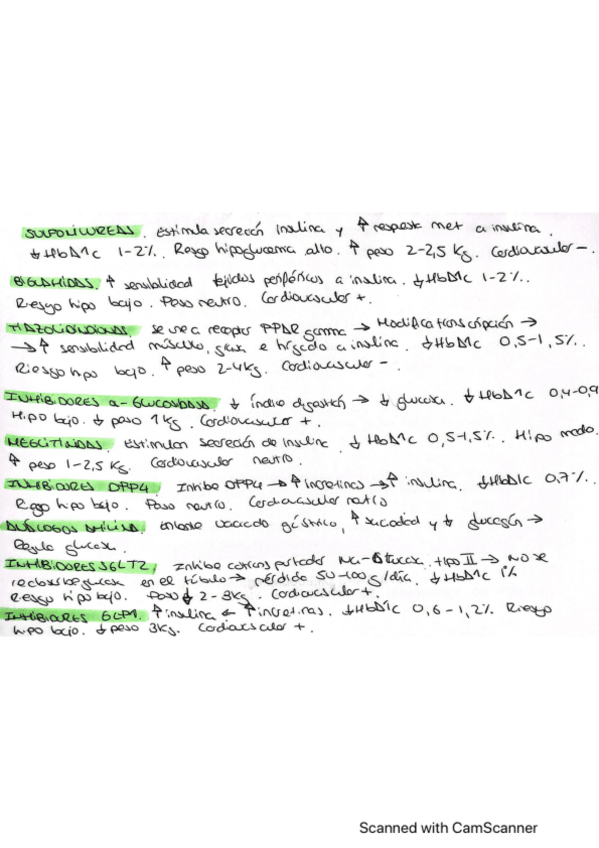 SULFONILUREAS. Estimula secreción insulina y ↑ respuesta met a insulina.
↓ HbA1c 1-2%. Riesgo hipoglucemia alto. ↑ peso 2-2,5 Kg. Cardiovascular -.
BIGUANIDAS. ↑ sensibilidad tejidos periféricos a insulina. ↓ HbA1c 1-2%.
Riesgo hipo bajo. Peso neutro. Cardiovascular +.
TIAZOLIDINDIONAS. se une a receptor PPAR gamma → Modifica transcripción →
→ ↑ sensibilidad músculo, grasa e hígado a insulina. ↓ HbA1c 0,5-1,5%.
Riesgo hipo bajo. ↑ peso 2-4 Kg. Cardiovascular -.
INHIBIDORES α-GLUCOSIDASA. ↓ índice digestión → ↓ glucosa. ↓ HbA1c 0,4-0,9
Hipo bajo. ↓ peso 1 Kg. Cardiovascular +.
MEGLITINIDAS. Estimulan secreción de insulina. ↓ HbA1c 0,5-1,5%. Hipo modo.
↑ peso 1-2,5 Kg. Cardiovascular neutro.
INHIBIDORES DPP4. Inhibe DPP4 → ↑ incretinas → ↑ insulina. ↓ HbA1c 0,7%.
Riesgo hipo bajo. Peso neutro. Cardiovascular neutro
ANÁLOGOS AMILINA. enlente vaciado gástrico, ↑ saciedad y ↓ glucagón →
Regula glucosa.
INHIBIDORES SGLT2, Inhibe cotransportador Na-Glucosa tipo II → NO se
reabsorbe glucosa en el túbulo → pérdida 50-100 g/día. ↓ HbA1c 1%
Riesgo hipo bajo. Peso ↓ 2-3 Kg. Cardiovascular +.
INHIBIDORES GLP1. ↑ insulina ← ↑ incretinas. ↓ HbA1c 0,6-1,2% Riesgo
hipo bajo. ↓ peso 3 Kg. Cardiovascular +.
Scanned with CamScanner